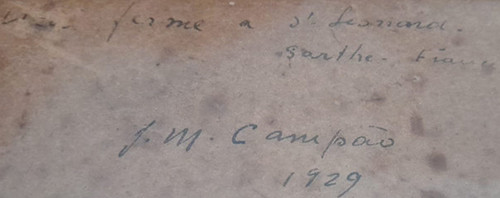 ferme a St. Leonard.
Sarthe. France
J. M. Campão
1929